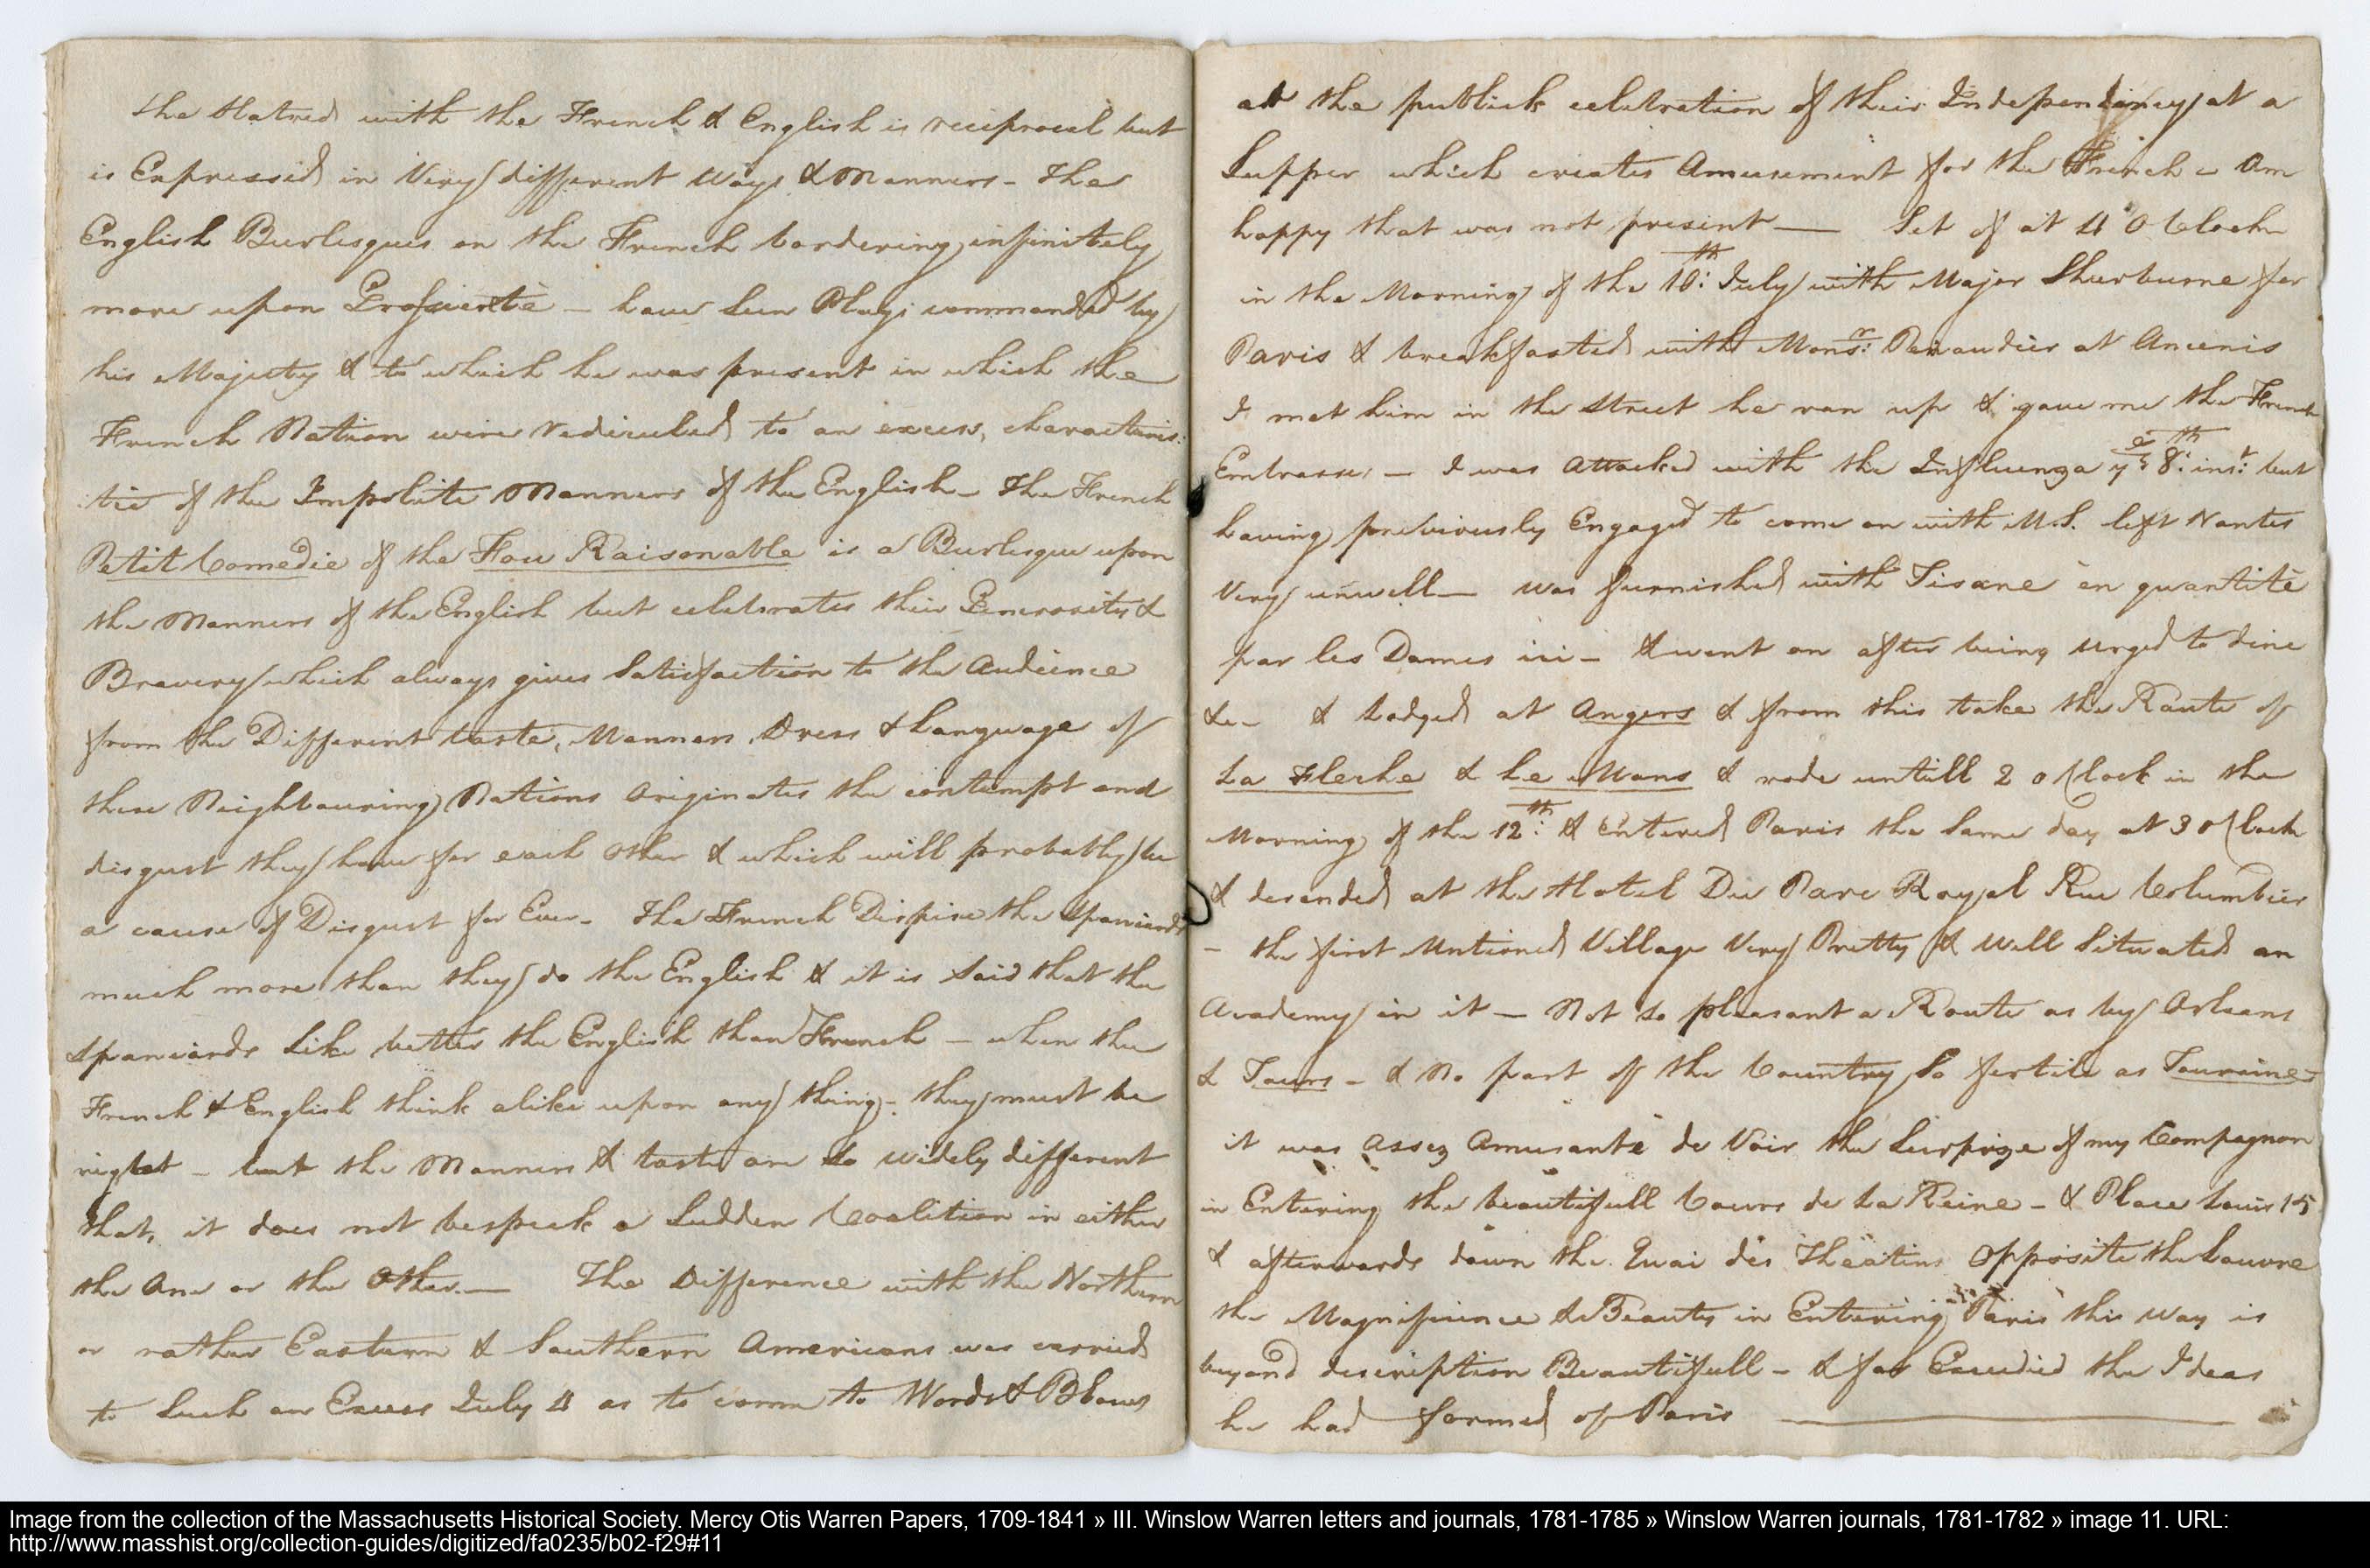 The Hatred with the French & English is reciprocal but
is Expressed in Very different Ways & Manners - The
English Burlesques on the French bordering infinitely
more upon - have seen Plays commanded by
his Majesty & to which he was present in which the
French Nation were rediculed to an excess, characteris:
:tic of the Impolite Manners of the English - The French
Petit Comedie of the Fou Raisonable is a Burlesque upon
the Manners of the English but celebrates their Generosity &
Bravery which always gives Satisfaction to the Audience
from the Different taste, Manners, Dress & Language of
these Neighbouring Nations Originates the contempt and
disgust they have for each Other & which will probably be
a cause of Disgust for Ever - The French Dispise the Spaniards
much more than they do the English & it is Said that the
Spaniards Like better the English than French - when the
French & English think alike upon any thing - they must be
right - but the Manners & taste are so widely different
that, it does not bespeek a Sudden Coalition in either
the One or the Other - The Difference with the Northern
or rather Eastern & Southern Americans was carried
to Such an Excess July 4 as to come to Words & Blows
at the publick celebration of their Independency at a
Supper which creates Amusement for the French & Am
happy that was not present - Set of at 4 O Clock
in the Morning of the 10:th July with Major Sherburne for
Paris & breakfasted with Mons:r at Ancenis
I met him in the Street he ran up & gave me the French
Embrasse, - I was Attacked with the Influenza ye 8:th ins:t but
having previously Engaged to come on with M.S. left Nantes
Very unwell - was furnished with Tisane en quantitè
par les Dames ici - & went on after being Urged to dine
&c - & Lodged at Angers & from this take the Route of
La Fleche & Le Mans & rode untill 2 o Clock in the
Morning of the 12:th & Entered Paris the Same day at 3 o Clock
& desended at the Hotel Du Parc Royal Rue Columbier
- the first Mntioned Village Very Pretty & Well Situated an
Academy in it - Not so pleasant a Route as by Orleans
& Tours - & No part of the Country So fertile as Touraine -
it was Assez Amusante de Voir the Surprize of my Compagnon
in Entering the beautifull Cours de La Reine - & Place Louis 15
& afterwards down the Quai des Theatins Opposite the Louvre
the Magnificence & Beauty in Entering Paris this Way is
beyond description Beautifull - & far Exceeded the Ideas
he had formed of Paris
Image from the collection of the Massachusetts Historical Society. Mercy Otis Warren Papers, 1709-1841 » III. Winslow Warren letters and journals, 1781-1785 » Winslow Warren journals, 1781-1782 » image 11. URL:
http://www.masshist.org/collection-guides/digitized/fa0235/b02-f29#11